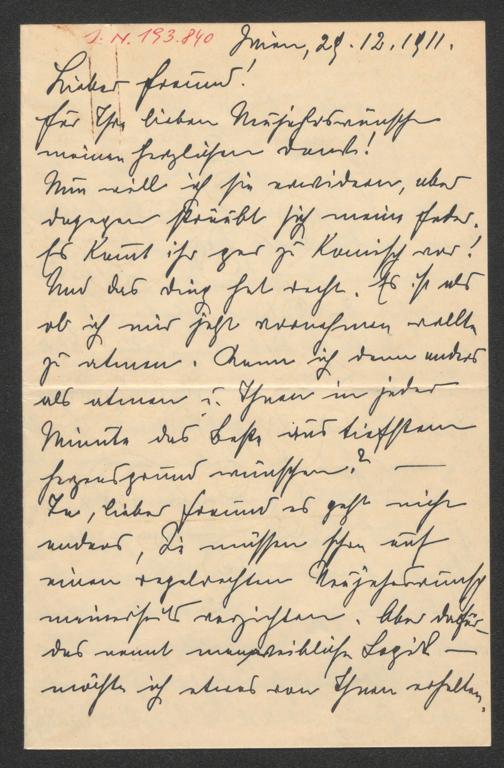 I. N. 193.840
Wien, 29.12.1911.
Lieber Freund!
Für Ihre lieben Neujahrswünsche
meinen herzlichen Dank!
Nun will ich sie erwidern, aber
dagegen sträubt sich meine Feder.
Es kommt ihr gar zu komisch vor!
Und das Ding hat recht. Es ist als
ob ich mir jetzt vornehmen wollte
zu atmen. Kann ich denn anders
als atmen u. Ihnen in jeder
Minute das Beste aus tiefstem
Herzensgrund wünschen? —
Ja, lieber Freund es geht nicht
anders, Sie müssen schon auf
einen regelrechten Neujahrswunsch
meinerseits verzichten. Aber dafür –
das nennt man weibliche Logik —
möchte ich etwas von Ihnen erhalten,